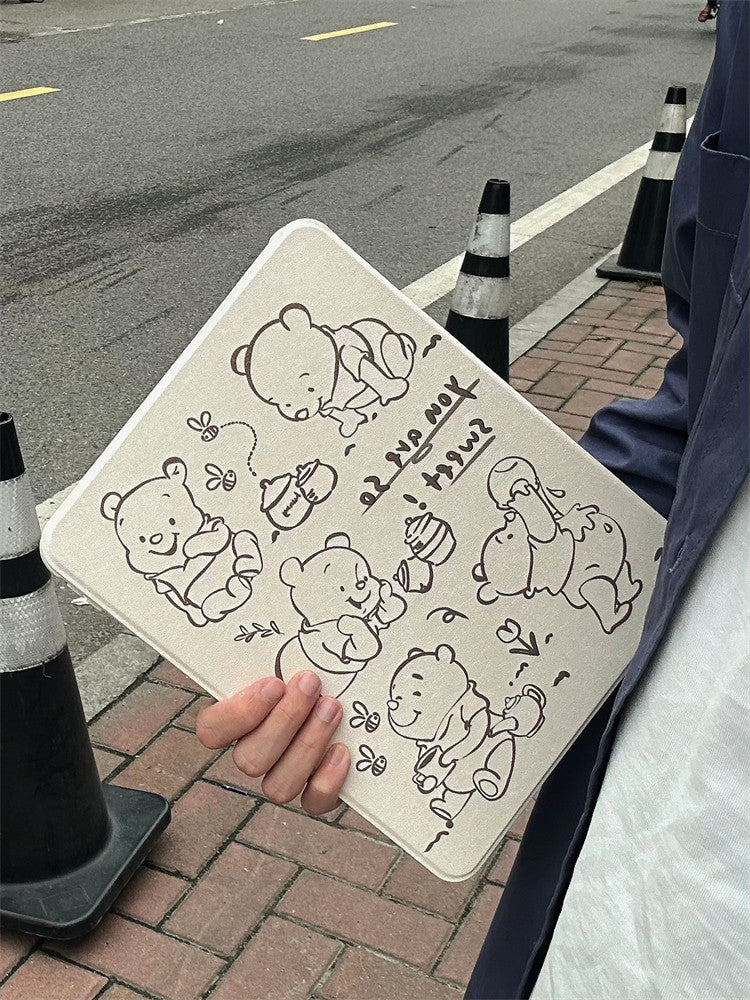 You are So
Sweet !